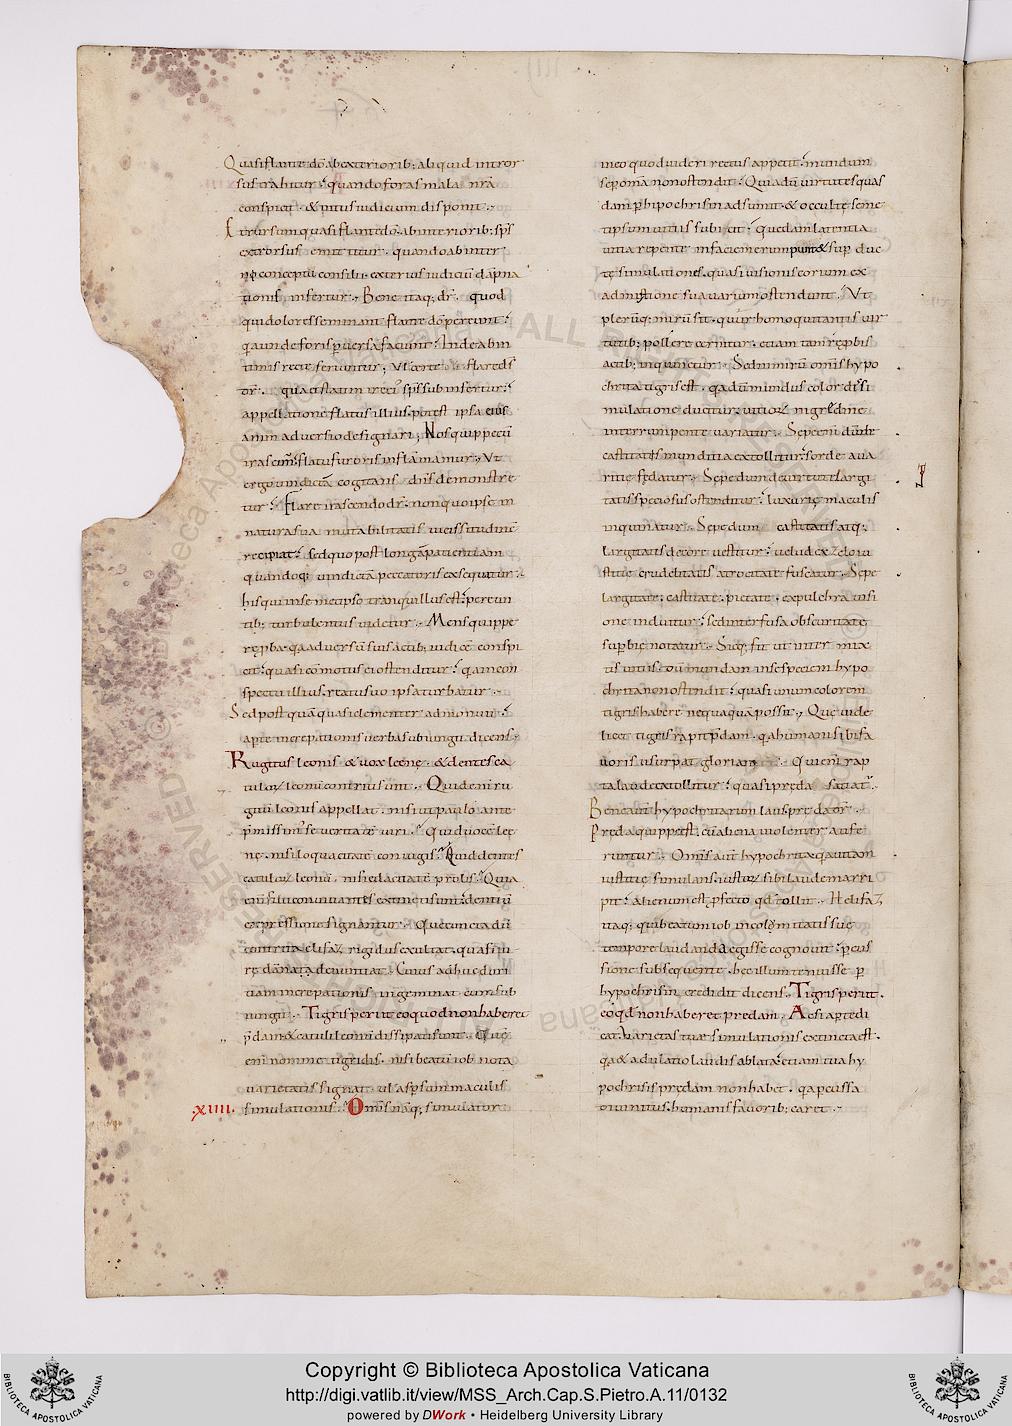 Quasi flante dō ab exteriorib; aliquid intror
sus trahitur. quando foras mala nr̄a
conspicit. & intus iudicium disponit.
Et rursum quasi flante dō. ab interiorib; sp̄s
extrorsus emittitur. quando ab inter
no conceptu consilii. exterius iudiciū dāpna
tionis infertur. Bene itaq; dr̄. quod
qui dolores seminant flante dō pereunt.
q̄a unde foris p̄versa faciunt. Inde ab in
timis recte feriuntur. Vel certe flare d̄s
dr̄.
appellatione flatus illius. potest ipsa eius
animaduersio designari; Nos quippe cū
irascim̄. flatu furoris inflāmamur. Vt
ergo uindictā cogitans dn̄s demonstre
tur. Flare irascendo dr̄. non quo ipse in
natura sua mutabilitatis uicissitudinē
recipiat. sed quo post longā patientiam
quando q̄ uindictā peccatoris exsequitur.
his qui in semetipso tranquillus est. pereun
tib; turbulentus uidetur. Mens quippe
rep̄ba. q̄a aduersū suis actib; iudicē conspi
cit. quasi cōmotus ei ostenditur. q̄a in con
spectu illius. reatu suo ipsa turbatur.
Sed postquā quasi clementer admonuit.
aptē increpationis uerba subiungit dicens.
Rugitus leonis & uox leęnę. & dentes ca
tulorū leonū contriti sunt. Quid enī ru
gitū leonis appellat. nisi ut paulo ante
p̄misim̄ seueritatē uiri. Quid uocē leę
nę. nisi loquacitatē coniugis. Quid dentes
catulorū leonū. nisi edacitatē prolis. Quia
enī filii conuiuantes extincti sunt. dentiū
expressione signantur. Que cuncta dū
contrita elifaz rigidus exultat. quasi iu
re dānata denuntiat. Cuius adhuc duri
tiam increpationis ingeminat cum sub
iungit. Tigris periit eo quod non haberet
p̄dam. & catuli leonū dissipati sunt. Quē
enī nomine tigridis. nisi beatū iob nota
uarietatis signat. uel aspsum maculis
.xiiii. simulationis. Om̄s nāq; simulator
in eo quod uideri rectus appetit. mundum
se p om̄a non ostendit. Qui adū uirtutes quas
dam p hipochrisin adsumit. & occulte seme
tipsum uitiis subicit. quędam latentia
uitia repente in faciem erumpunt. & sup̄duc
tę simulationis. quasi uisionis eorum ex
admixtione sua uarum ostendunt. Vt
plerūq; mirū sit. qur homo qui tantis uir
tutib; pollere cernitur. etiam tam rep̄bis
actib; inquinetur. Sed nimirū om̄is hypo
chrita tigris est. q̄a dū mundus color de si
mulatione ducitur. uitiorū nigredine
interrumpente uariatur. Sepe enī dū de
castitatis munditia extollitur. sorde aua
ritię fędatur. Sepe dum de uirtute largi
tatis speciosus ostenditur. luxurię maculis
inquinatur. Sepe dum castitatis atq;
largitatis decore uestitur. uelud ex zelo iu
stitię crudelitatis atrocitate fuscatur. Sepe
largitate. castitate. pietate. ex pulchra uisi
one induitur. sed interfusa obscuritate
sup̄bię notatur. Sicq; fit ut inter mix
tis uitiis. dū mundam in se speciem hypo
chrita non ostendit. quasi unum colorem
tigris habere nequaquā possit. Que uide
licet tigris rapit p̄dam. q̄a humani sibi fa
uoris usurpat gloriam. Qui enī rap
ta laude extollitur. quasi pręda satiat̄.
Bene autē hypochritarum laus. preda dr̄.
Preda quippe est. cū aliena uiolenter aufe
runtur. Om̄is autē hypochrita q̄a uitam
iustitię simulans. iustorū sibi laudem arri
pit. Alienum est p̄fecto qd̄ tollit. Helifaz
itaq; qui beatum iob incolomitatis suę
tempore laudanda egisse cognouit. p̄cus
sione subsequente. hęc illum tenuisse p̄
hypochrisin credidit dicens. Tigris periit.
eo qd̄ non haberet predam. Ac si ap̄te di
cat. Varietas tuę simulationis extincta est.
q̄a & adulatio laudis ablata. etiam tua hy
pochrisis predam non habet. q̄a p̄cussa
diuinitus. humanis fauorib; caret.
Copyright © Biblioteca Apostolica Vaticana
http://digi.vatlib.it/view/MSS_Arch.Cap.S.Pietro.A.11/0132
powered by DWork • Heidelberg University Library